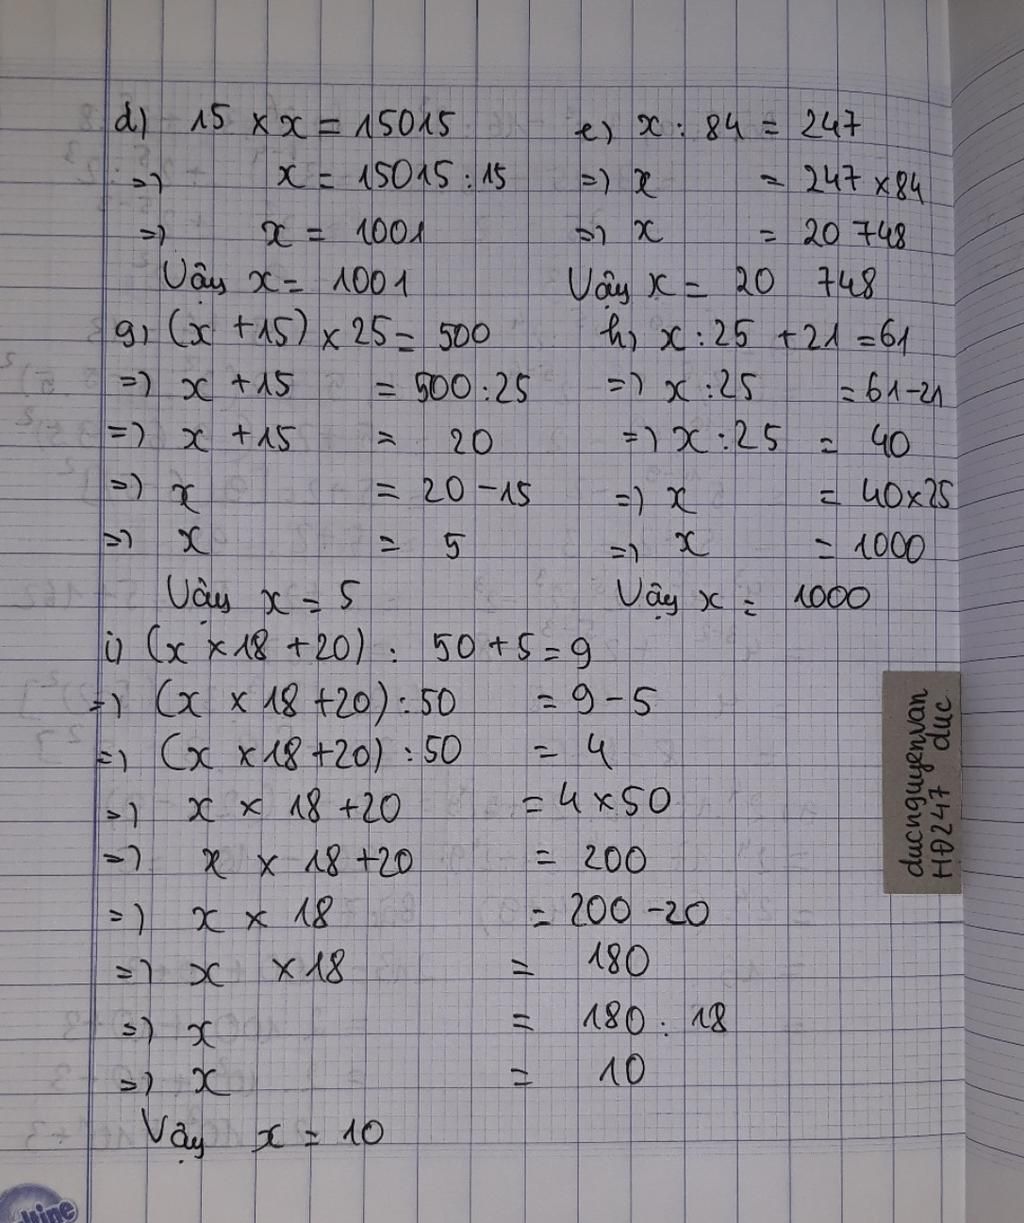 d) 15 × x = 15015
=) x = 15015 : 15
=) x = 1001
Vậy x = 1001
e) x : 84 = 247
=) x = 247 × 84
=) x = 20 748
Vậy x = 20 748
g) (x + 15) × 25 = 500
=) x + 15 = 500 : 25
=) x + 15 = 20
=) x = 20 - 15
=) x = 5
Vậy x = 5
h) x : 25 + 21 = 61
=) x : 25 = 61 - 21
=) x : 25 = 40
=) x = 40 × 25
=) x = 1000
Vậy x = 1000
i) (x × 18 + 20) : 50 + 5 = 9
=) (x × 18 + 20) : 50 = 9 - 5
=) (x × 18 + 20) : 50 = 4
=) x × 18 + 20 = 4 × 50
=) x × 18 + 20 = 200
=) x × 18 = 200 - 20
=) x × 18 = 180
=) x = 180 : 18
=) x = 10
Vậy x = 10
ducnguyenvan
HĐ247 duc